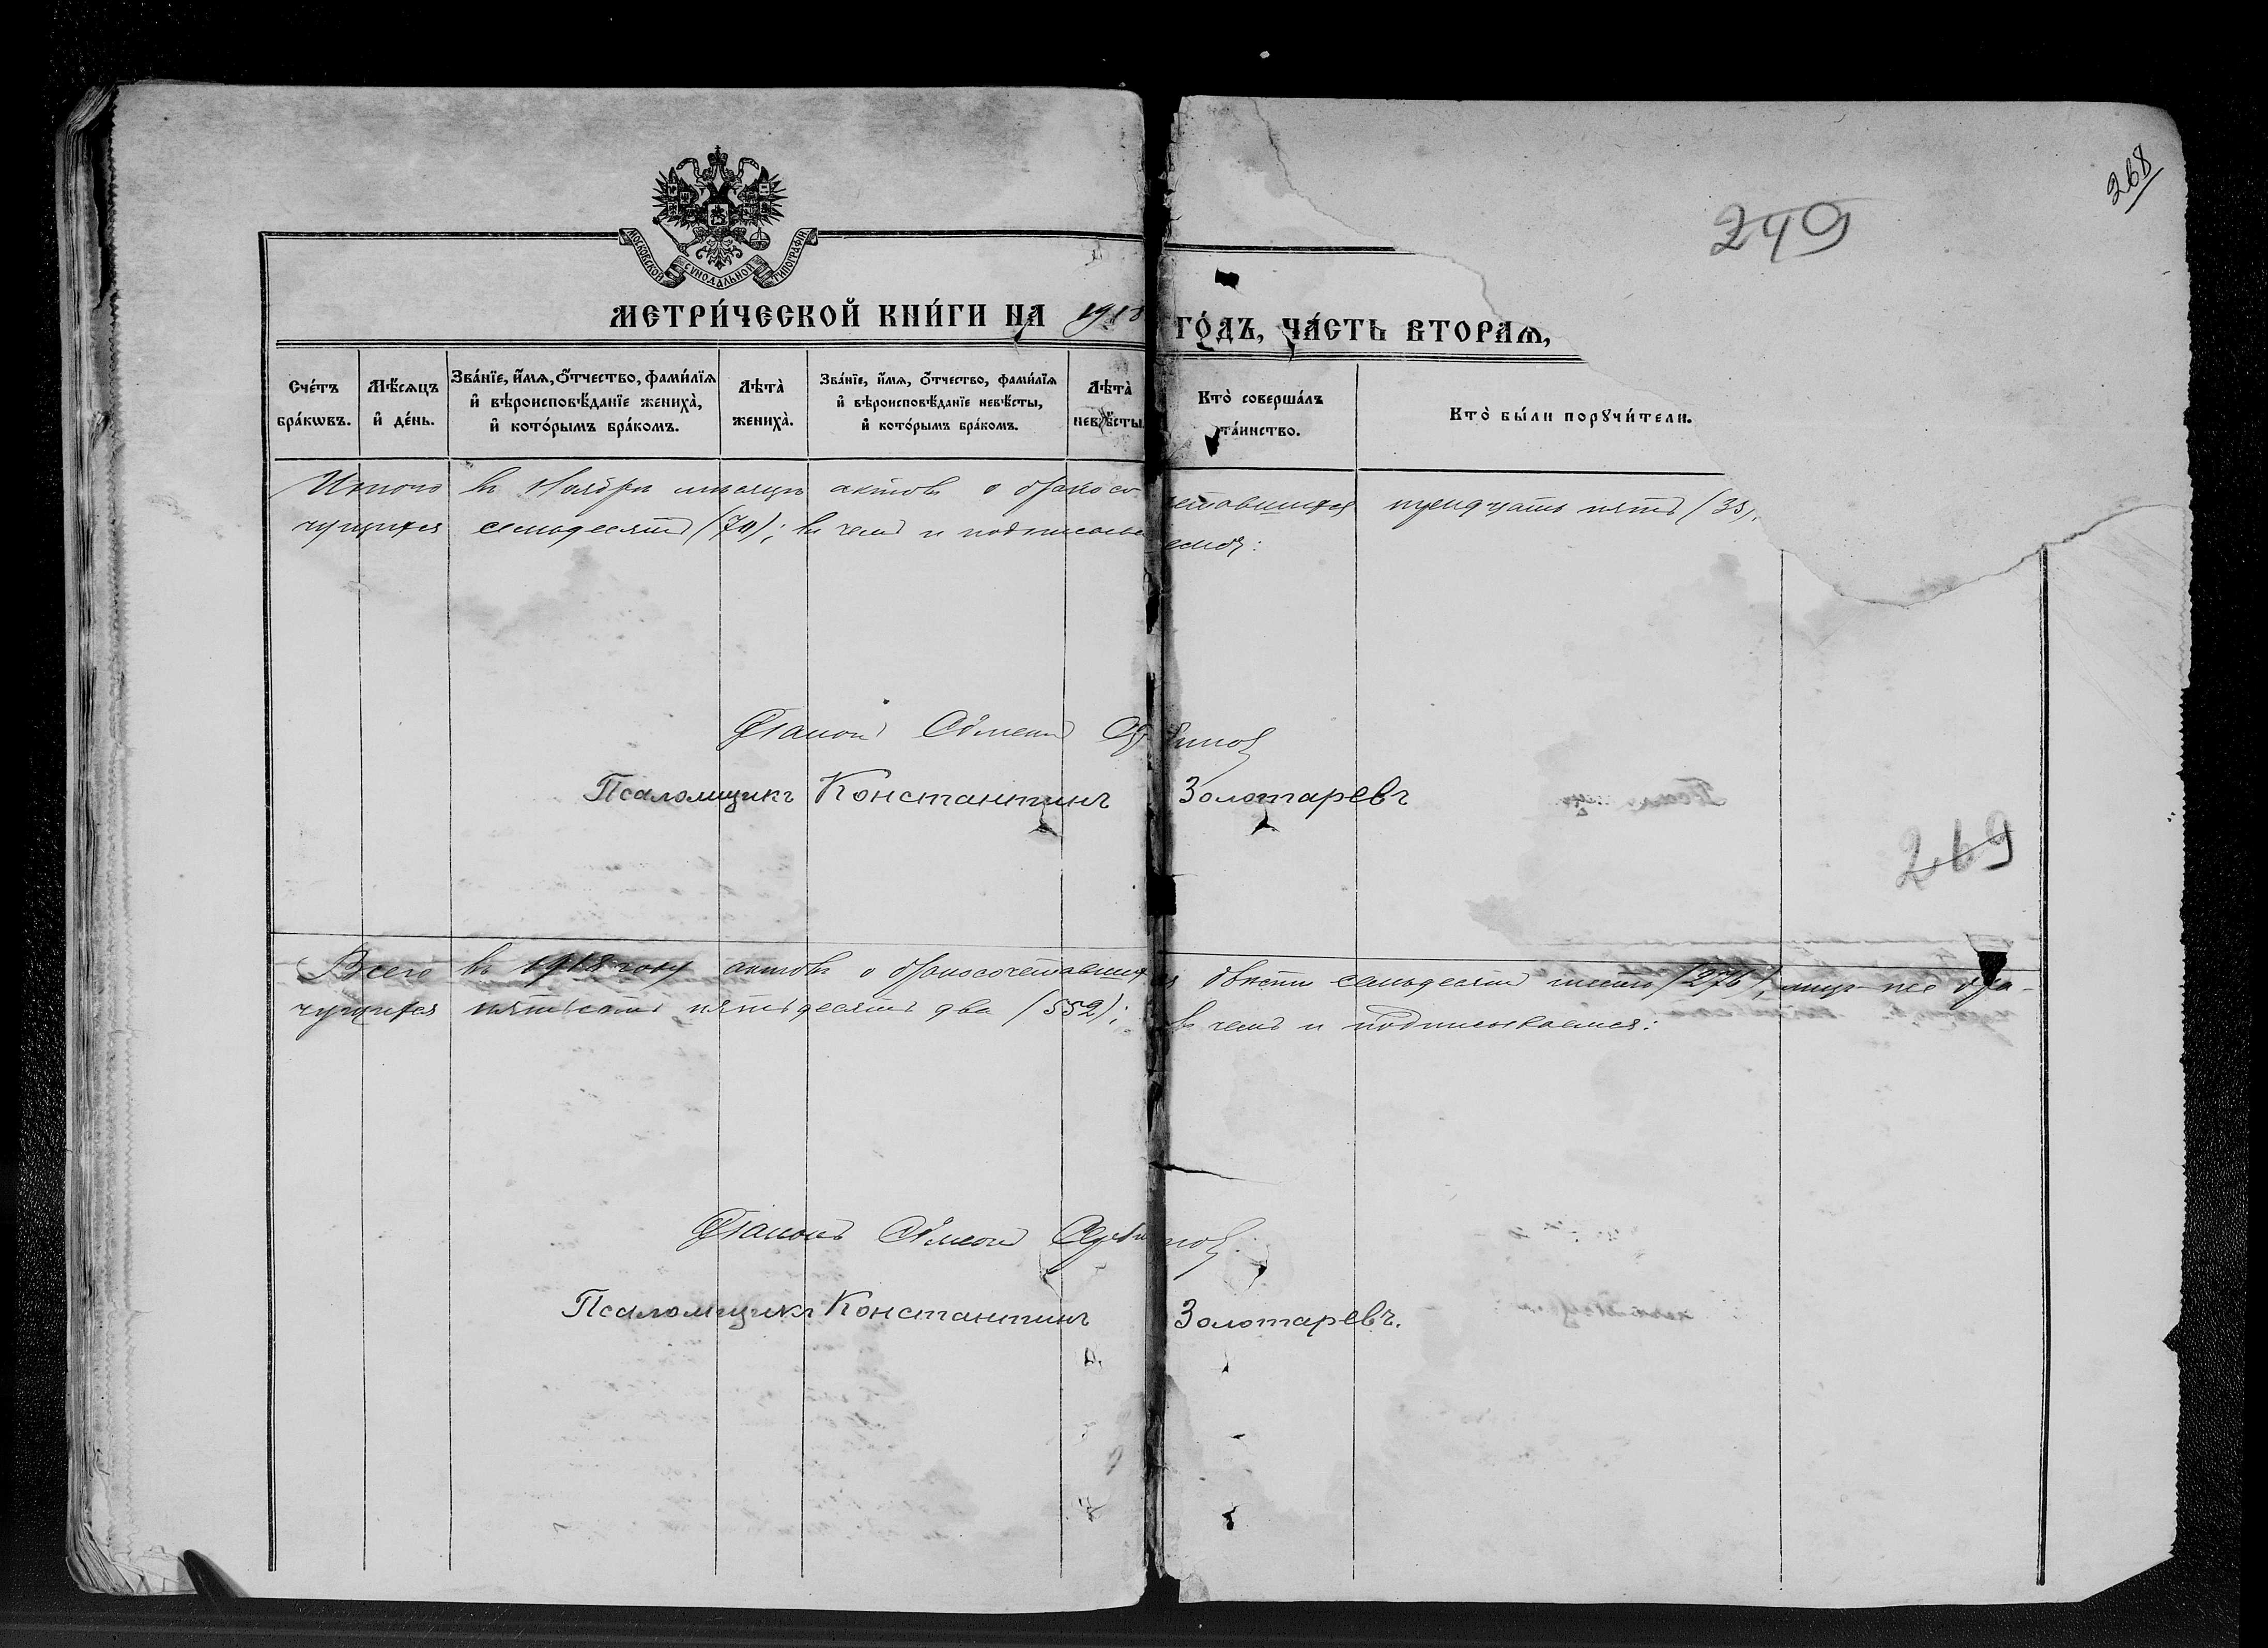 268
249
МОСКОВСКОЙ СѴНОДАЛЬНОЙ ТИПОГРАФІИ
МЕТРИ́ЧЕСКОЙ КНИ́ГИ НА 1918 ГО́ДЪ, ЧА́СТЬ ВТОРАѦ,
Сче́тъ бра́кѡвъ.
Мѣ́сѧцъ и҆ де́нь.
Зва́нїе, и҆́мѧ, ѻ҆́тчество, фами́лїѧ и҆ вѣроисповѣ́данїе женихà, и҆ кото́рымъ бра́комъ.
Лѣтà женихà.
Зва́нїе, и҆́мѧ, ѻ҆́тчество, фами́лїѧ и҆ вѣроисповѣ́данїе невѣ́сты, и҆ кото́рымъ бра́комъ.
Лѣтà невѣ́сты.
Кто̀ соверша́лъ та́инство.
Кто̀ бы́ли порꙋчи́тели.
Итого въ Ноябрѣ мѣсяцѣ актовъ о бракосочетавшихся тридцать пять (35),
чущихся семьдесятъ (70); въ чемъ и подписываемся:
Псаломщикъ Константинъ Золотаревъ
269
Всего въ 1918 году актовъ о бракосочетавшихся двѣсти семьдесятъ шесть (276), лицъ же бра-
чущихся пятьсотъ пятьдесятъ два (552); въ чемъ и подписываемся:
Псаломщикъ Константинъ Золотаревъ.